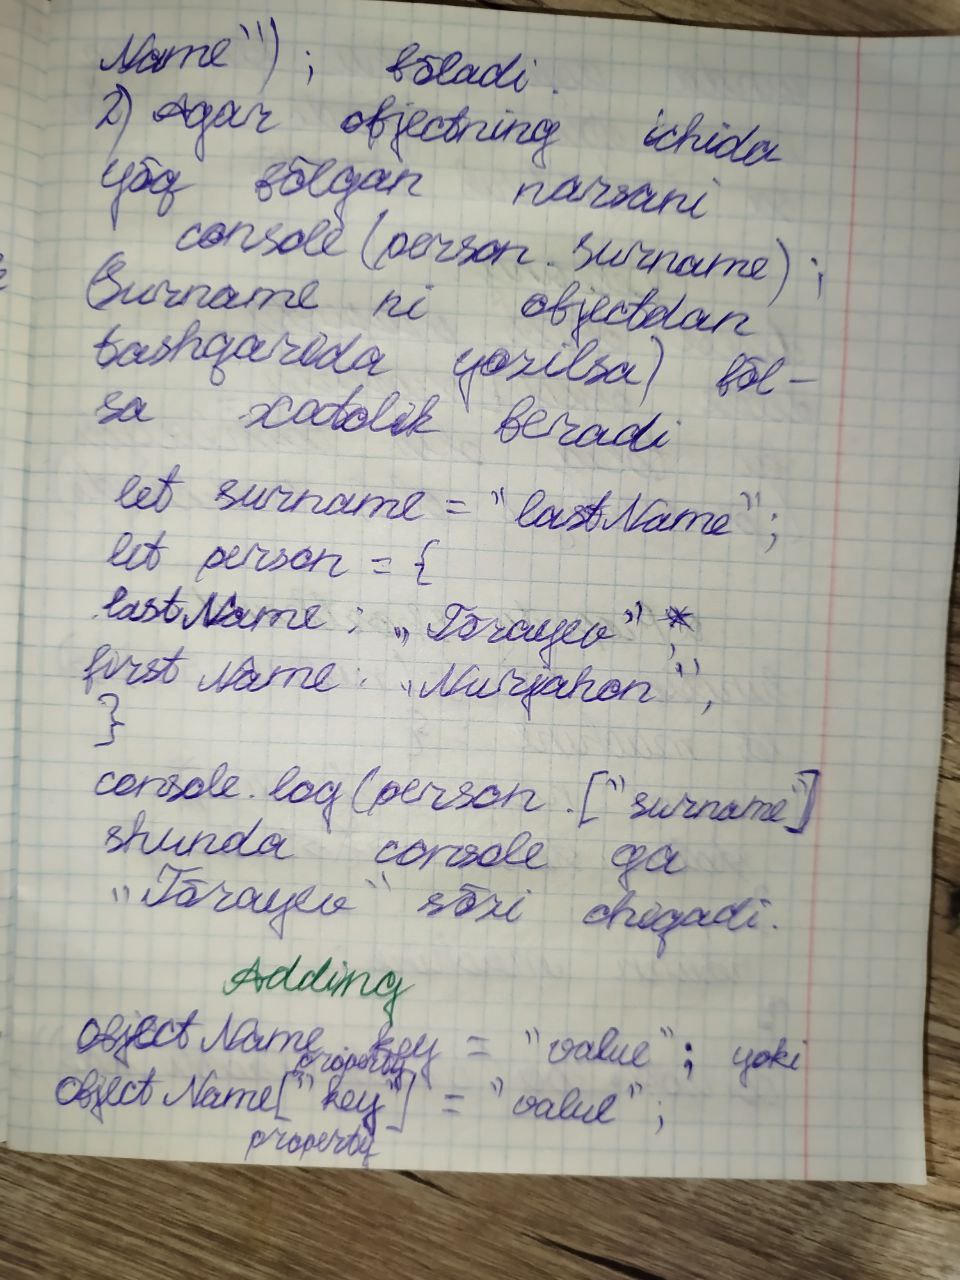 Name"); bōladi.
2) Agar objectning ichida
yōq bōlgan narsani
console(person.surname);
(surname ni objectdan
tashqarida yozilsa) bōl-
sa xatolik beradi
let surname = "lastName";
let person = {
lastName: "Tōrayev",
first Name: "Nurjahon",
}
console.log(person.["surname"]
shunda console ga
"Tōrayev" sōzi chiqadi.
Adding
object Name key = "value"; yoki
property
object Name["key"] = "value";
property